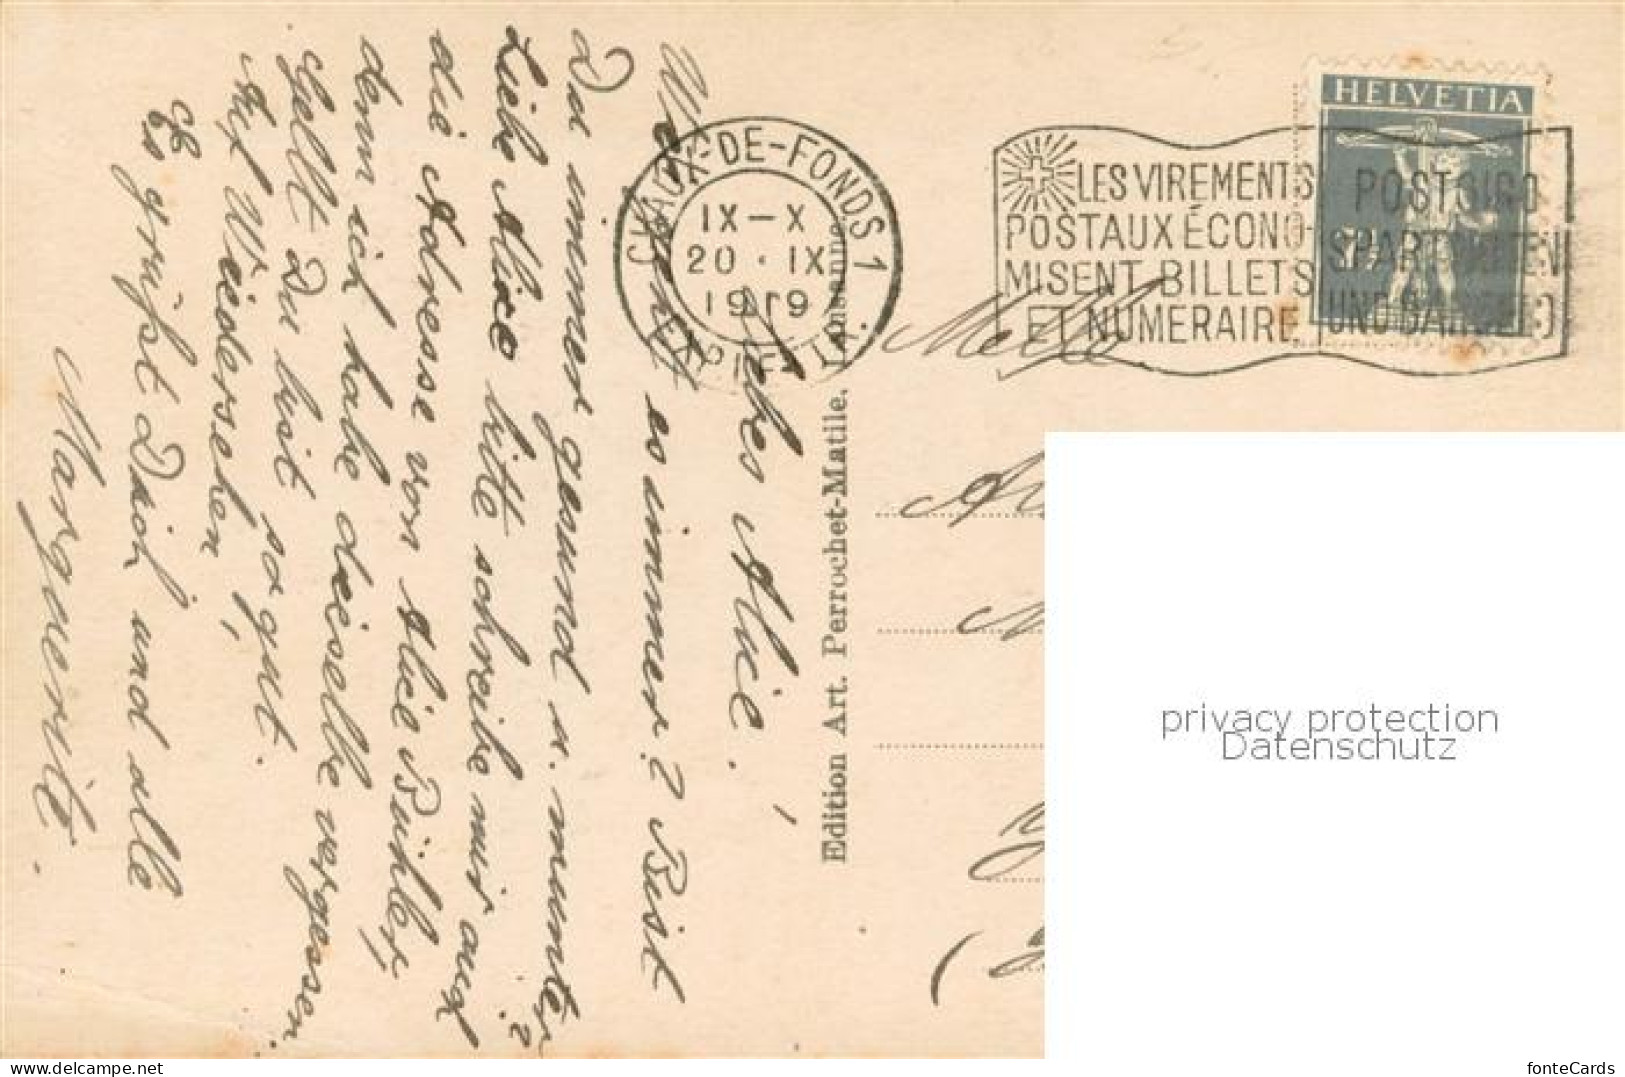 Liebes Alice!
Wie geht es immer? Bist
Du immer gesund u. munter?
Liebe Alice bitte schreibe mir auch
die Adresse von Alice Bühler,
denn ich habe dieselbe vergessen.
Gellt Du bist so gut.
Auf Wiedersehen,
Es grüßt Dich und alle
Marguerite.
Edition Art. Perrochet-Matile, Lausanne
CHAUX-DE-FONDS 1
IX–X
20·IX
1919
LES VIREMENTS
POSTAUX ÉCONO-
MISENT BILLETS
ET NUMERAIRE
POSTGIRO
SPART
UND
HELVETIA
7½
Mello
privacy protection
Datenschutz
www.delcampe.net
fonteCards